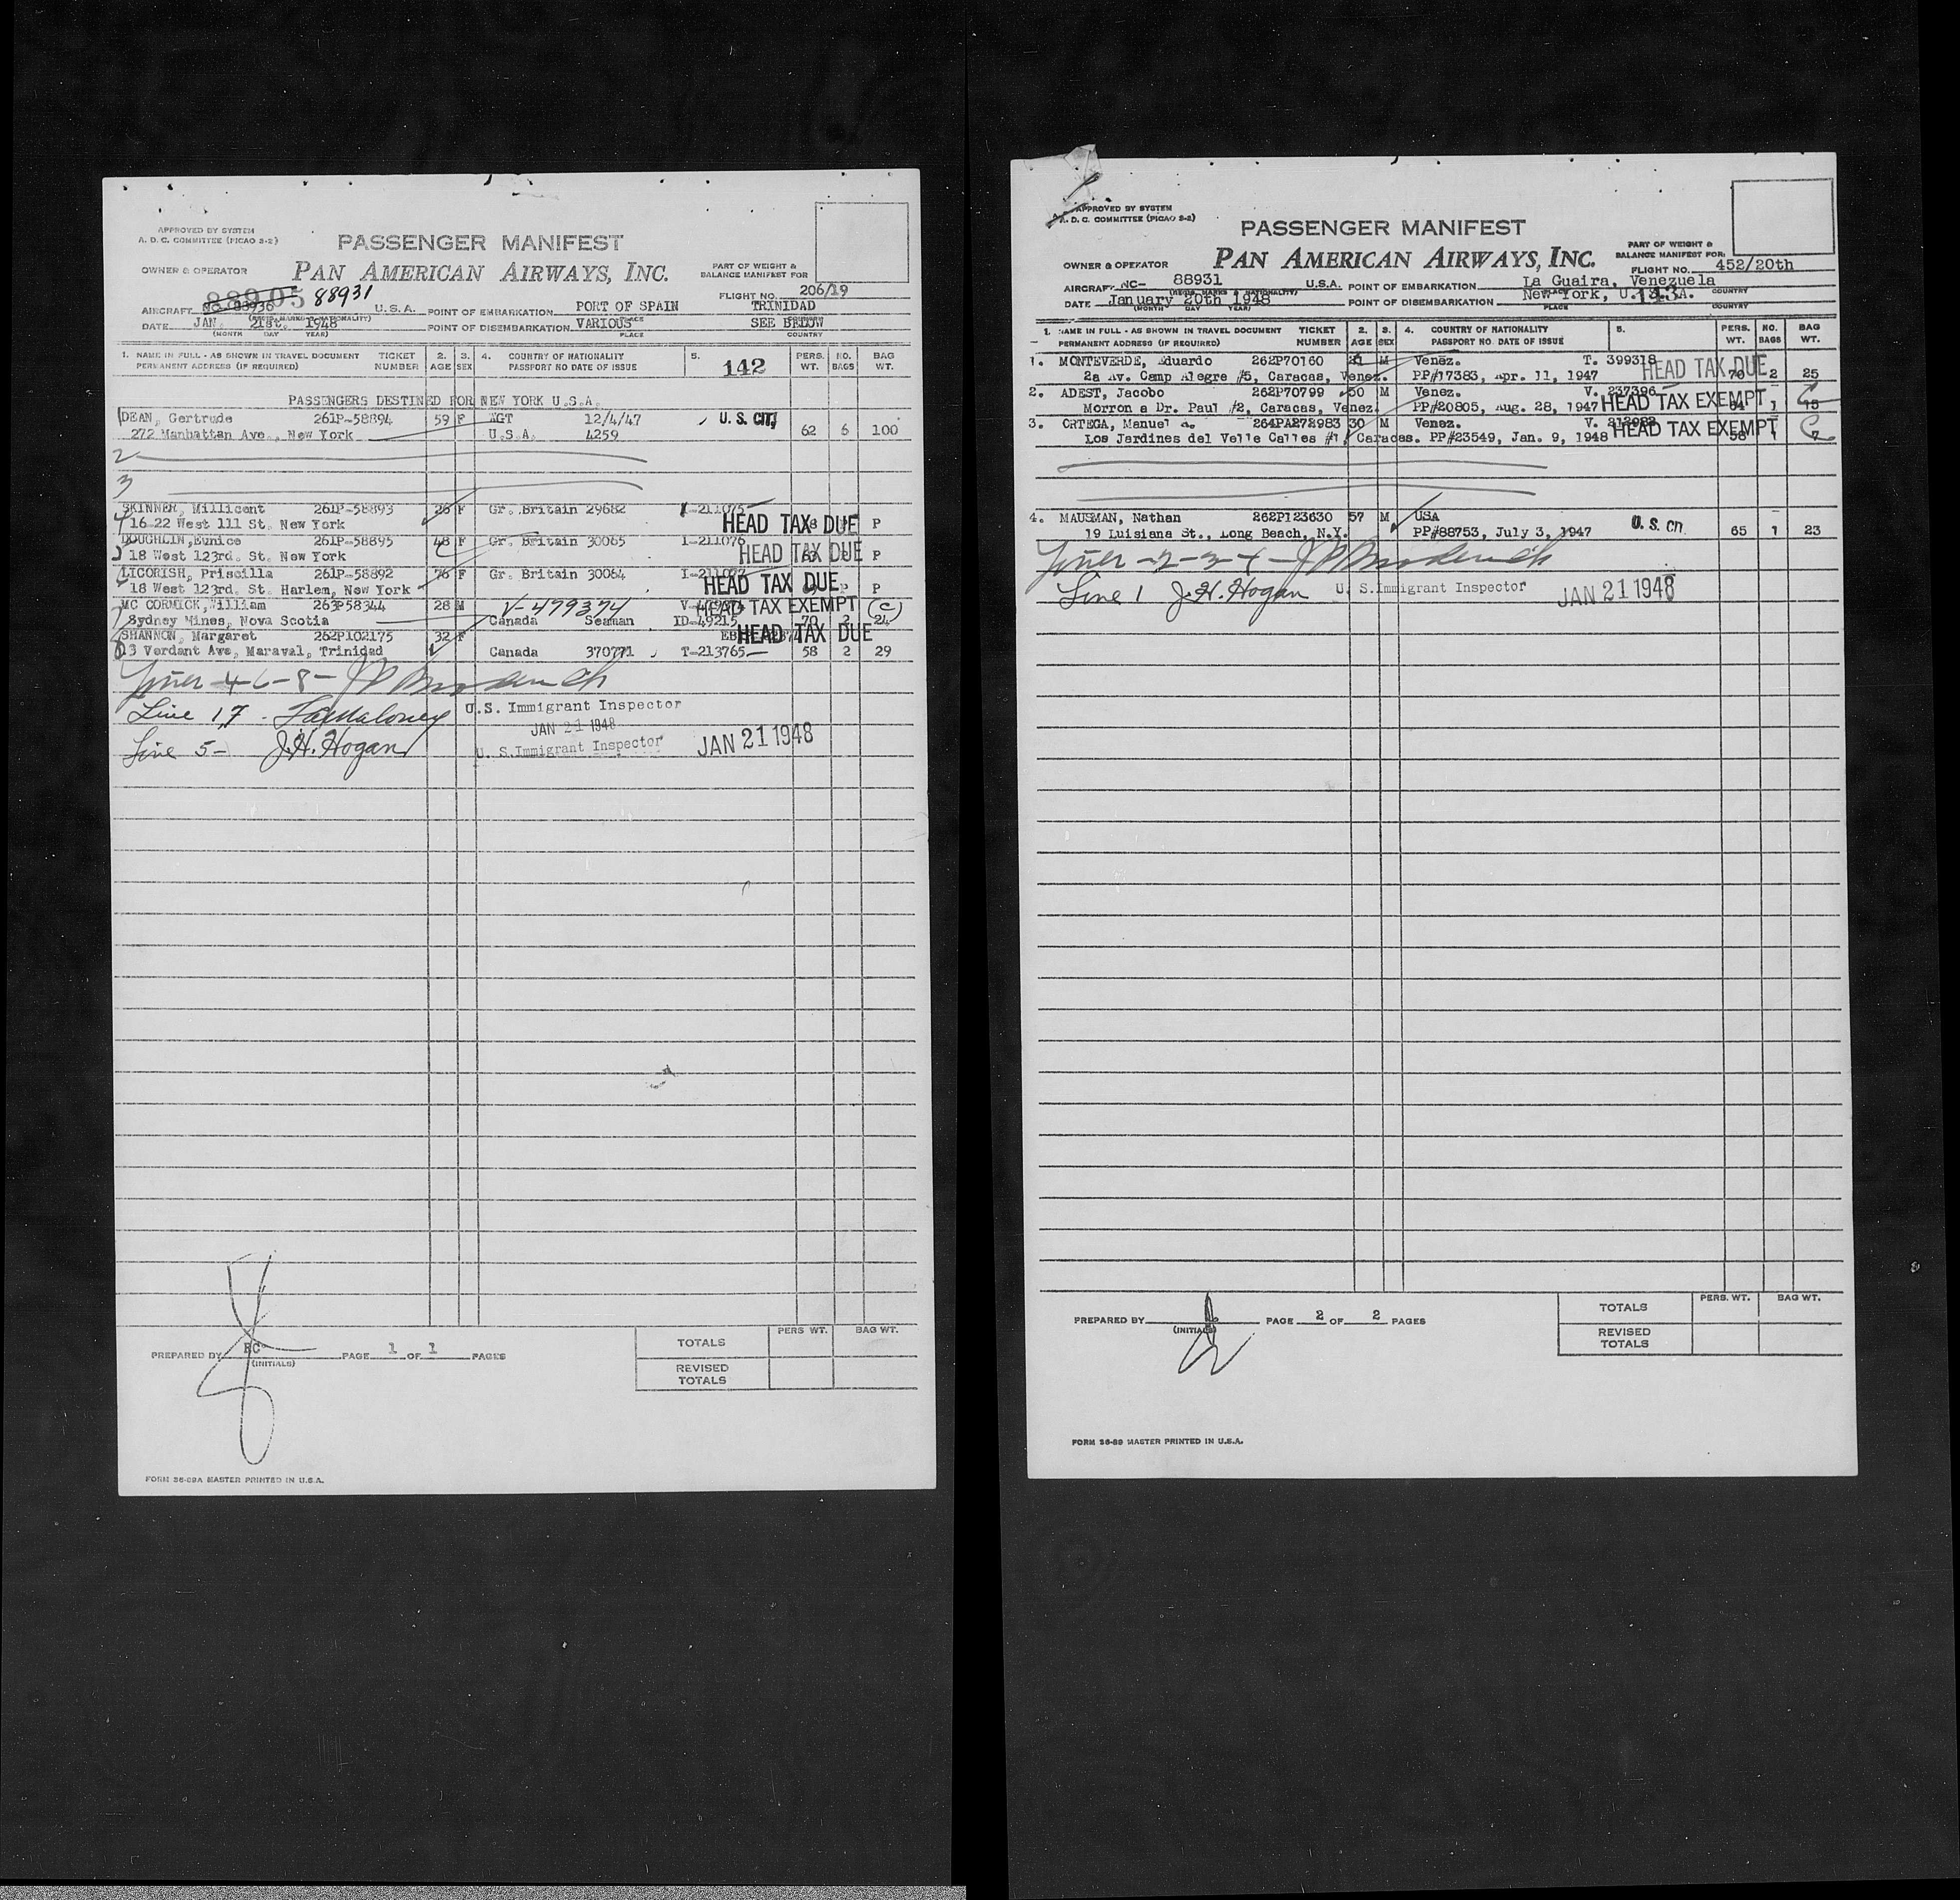 APPROVED BY SYSTEM
A. D. C. COMMITTEE (PICAO S-2)
PASSENGER MANIFEST
OWNER & OPERATOR PAN AMERICAN AIRWAYS, INC.
PART OF WEIGHT &
BALANCE MANIFEST FOR
FLIGHT NO. 206/19
88905 88931
AIRCRAFT U.S.A. POINT OF EMBARKATION PORT OF SPAIN TRINIDAD
DATE JAN. 21st. 1948 POINT OF DISEMBARKATION VARIOUS SEE BELOW
(MONTH DAY YEAR) PLACE COUNTRY
1. NAME IN FULL - AS SHOWN IN TRAVEL DOCUMENT TICKET 2. 3. 4. COUNTRY OF NATIONALITY 5. PERS. NO. BAG
PERMANENT ADDRESS (IF REQUIRED) NUMBER AGE SEX PASSPORT NO DATE OF ISSUE 142 WT. BAGS WT.
PASSENGERS DESTINED FOR NEW YORK U.S.A.
DEAN, Gertrude 261P-58894 59 F 12/4/47 U.S. CIT.
272 Manhattan Ave., New York U.S.A. 4259 62 6 100
2
3
SKINNER, Millicent 261P-58893 26 F Gr. Britain 29682 I-211075
4 16-22 West 111 St. New York HEAD TAX DUE P
DOUGHLIN, Eunice 261P-58895 48 F Gr. Britain 30065 I-211076
5 18 West 123rd. St. New York HEAD TAX DUE P
LICORISH, Priscilla 261P-58892 76 F Gr. Britain 30064
18 West 123rd. St. Harlem, New York HEAD TAX DUE P
MC CORMICK, William 263P58344 28 M V-479374 HEAD TAX EXEMPT (C)
7 Sydney Mines, Nova Scotia Canada Seaman ID-49215 70 2 24
SHANNON, Margaret 262P102175 32 F HEAD TAX DUE
8 13 Verdant Ave, Maraval, Trinidad Canada 370771 T-213765 58 2 29
Lines 4-6-8-
Line 1,7 - U.S. Immigrant Inspector
JAN 21 1948
Line 5- J.H. Hogan U. S.Immigrant Inspector JAN 21 1948
PREPARED BY (INITIALS) PAGE 1 OF 1 PAGES
PERS WT. BAG WT.
TOTALS
REVISED
TOTALS
FORM 36-89A MASTER PRINTED IN U.S.A.
APPROVED BY SYSTEM
A. D. C. COMMITTEE (PICAO S-2)
PASSENGER MANIFEST
OWNER & OPERATOR PAN AMERICAN AIRWAYS, INC.
PART OF WEIGHT &
BALANCE MANIFEST FOR:
FLIGHT NO. 452/20th
AIRCRAFT NC- 88931 U.S.A. POINT OF EMBARKATION La Guaira, Venezuela
DATE January 20th 1948 POINT OF DISEMBARKATION New York, U.S.A. 143
(MONTH DAY YEAR) PLACE COUNTRY
1. NAME IN FULL - AS SHOWN IN TRAVEL DOCUMENT TICKET 2. 3. 4. COUNTRY OF NATIONALITY 5. PERS. NO. BAG
PERMANENT ADDRESS (IF REQUIRED) NUMBER AGE SEX PASSPORT NO. DATE OF ISSUE WT. BAGS WT.
1. MONTEVERDE, Eduardo 262P70160 M Venez. T. 399318
2a Av. Camp Alegre #5, Caracas, Venez. PP#17383, Apr. 11, 1947 HEAD TAX DUE 2 25
2. ADEST, Jacobo 262P70799 50 M Venez. V. 237396
Morron a Dr. Paul #2, Caracas, Venez. PP#20805, Aug. 28, 1947 HEAD TAX EXEMPT 1 15
3. ORTEGA, Manuel A. 264PA272983 30 M Venez. V.
Los Jardines del Valle Calles #1, Caracas. PP#23549, Jan. 9, 1948 HEAD TAX EXEMPT 1 7
4. MAUSMAN, Nathan 262P123630 57 M USA U.S. CIT.
19 Luisiana St., Long Beach, N.Y. PP#88753, July 3, 1947 65 1 23
Lines -2-3-4-
Line 1 J.H. Hogan U. S.Immigrant Inspector JAN 21 1948
PREPARED BY (INITIALS) PAGE 2 OF 2 PAGES
PERS. WT. BAG WT.
TOTALS
REVISED
TOTALS
FORM 36-89 MASTER PRINTED IN U.S.A.